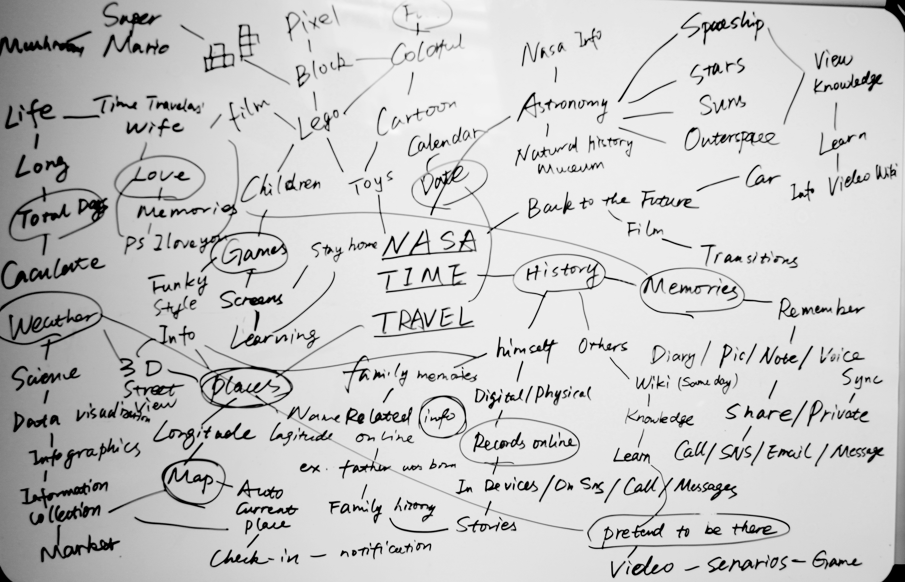 Super
Mario
Mushroom
Pixel
Block
Colorful
Lego
film
Cartoon
Children
Toys
Life
Time Travelas'
Wife
Long
Love
Total Days
Memories
PS I love you
Caculate
Games
Funky
Style
Screens
Stay home
Learning
Calendar
Date
Nasa Info
Astronomy
Natural History
Museum
Spaceship
Stars
Suns
Outerspace
View
Knowledge
Learn
Info Video Wiki
Back to the Future
Car
Film
Transitions
NASA
TIME
TRAVEL
History
Memories
Remember
Diary / Pic / Note / Voice
Sync
Share / Private
Call / SNS / Email / Message
himself
Others
Wiki (Same day)
Knowledge
Learn
Digital / Physical
Records online
In Devices / On SNS / Call / Messages
Stories
pretend to be there
Video - senarios - Game
Weather
Info
3D
Street
View
Places
Science
Data visualization
Infographics
Information
Collection
Market
Name
Longitude
Lagitude
Map
Auto
Current
place
Check-in - notification
family memories
Related
online
info
ex. father was born
Family hirory